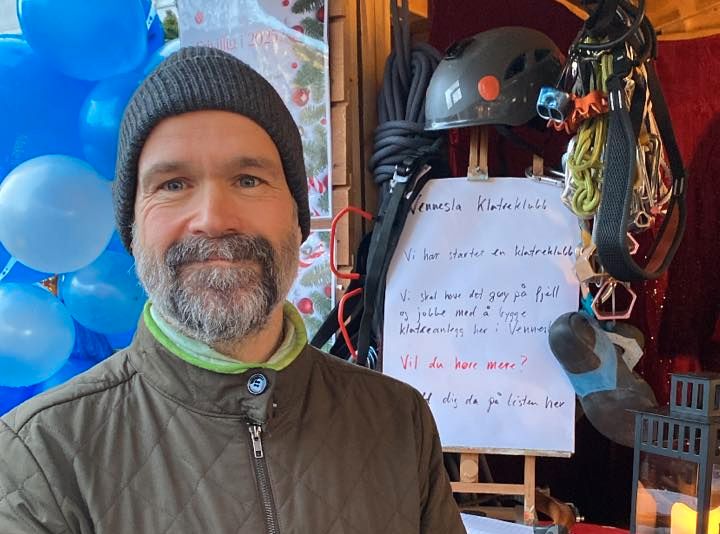 i 2025
Vennesla Klatreklubb
Vi har startet en klatreklubb
Vi skal have det gøy på fjell
og jobbe med å bygge
klatreanlegg her i Vennesl
Vil du høre mere?
dig da på listen her